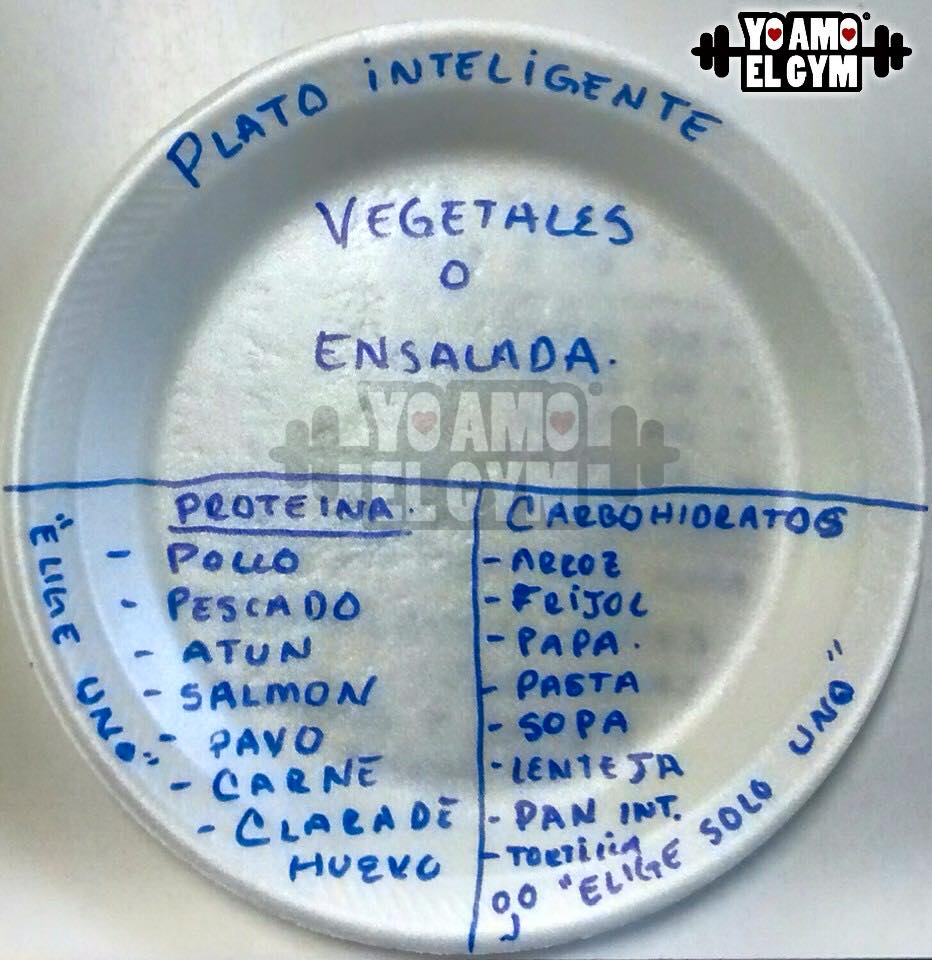 YO AMO
EL GYM
PLATO INTELIGENTE
VEGETALES
O
ENSALADA.
YO AMO
EL GYM
PROTEINA.
- POLLO
- PESCADO
- ATUN
- SALMON
- PAVO
- CARNE
- CLARA DE
HUEVO
"ELIGE UNO"
CARBOHIDRATOS
- ARROZ
- FRIJOL
- PAPA.
- PASTA
- SOPA
- LENTEJA
- PAN INT.
- TORTILLA
"ELIGE SOLO UNO"